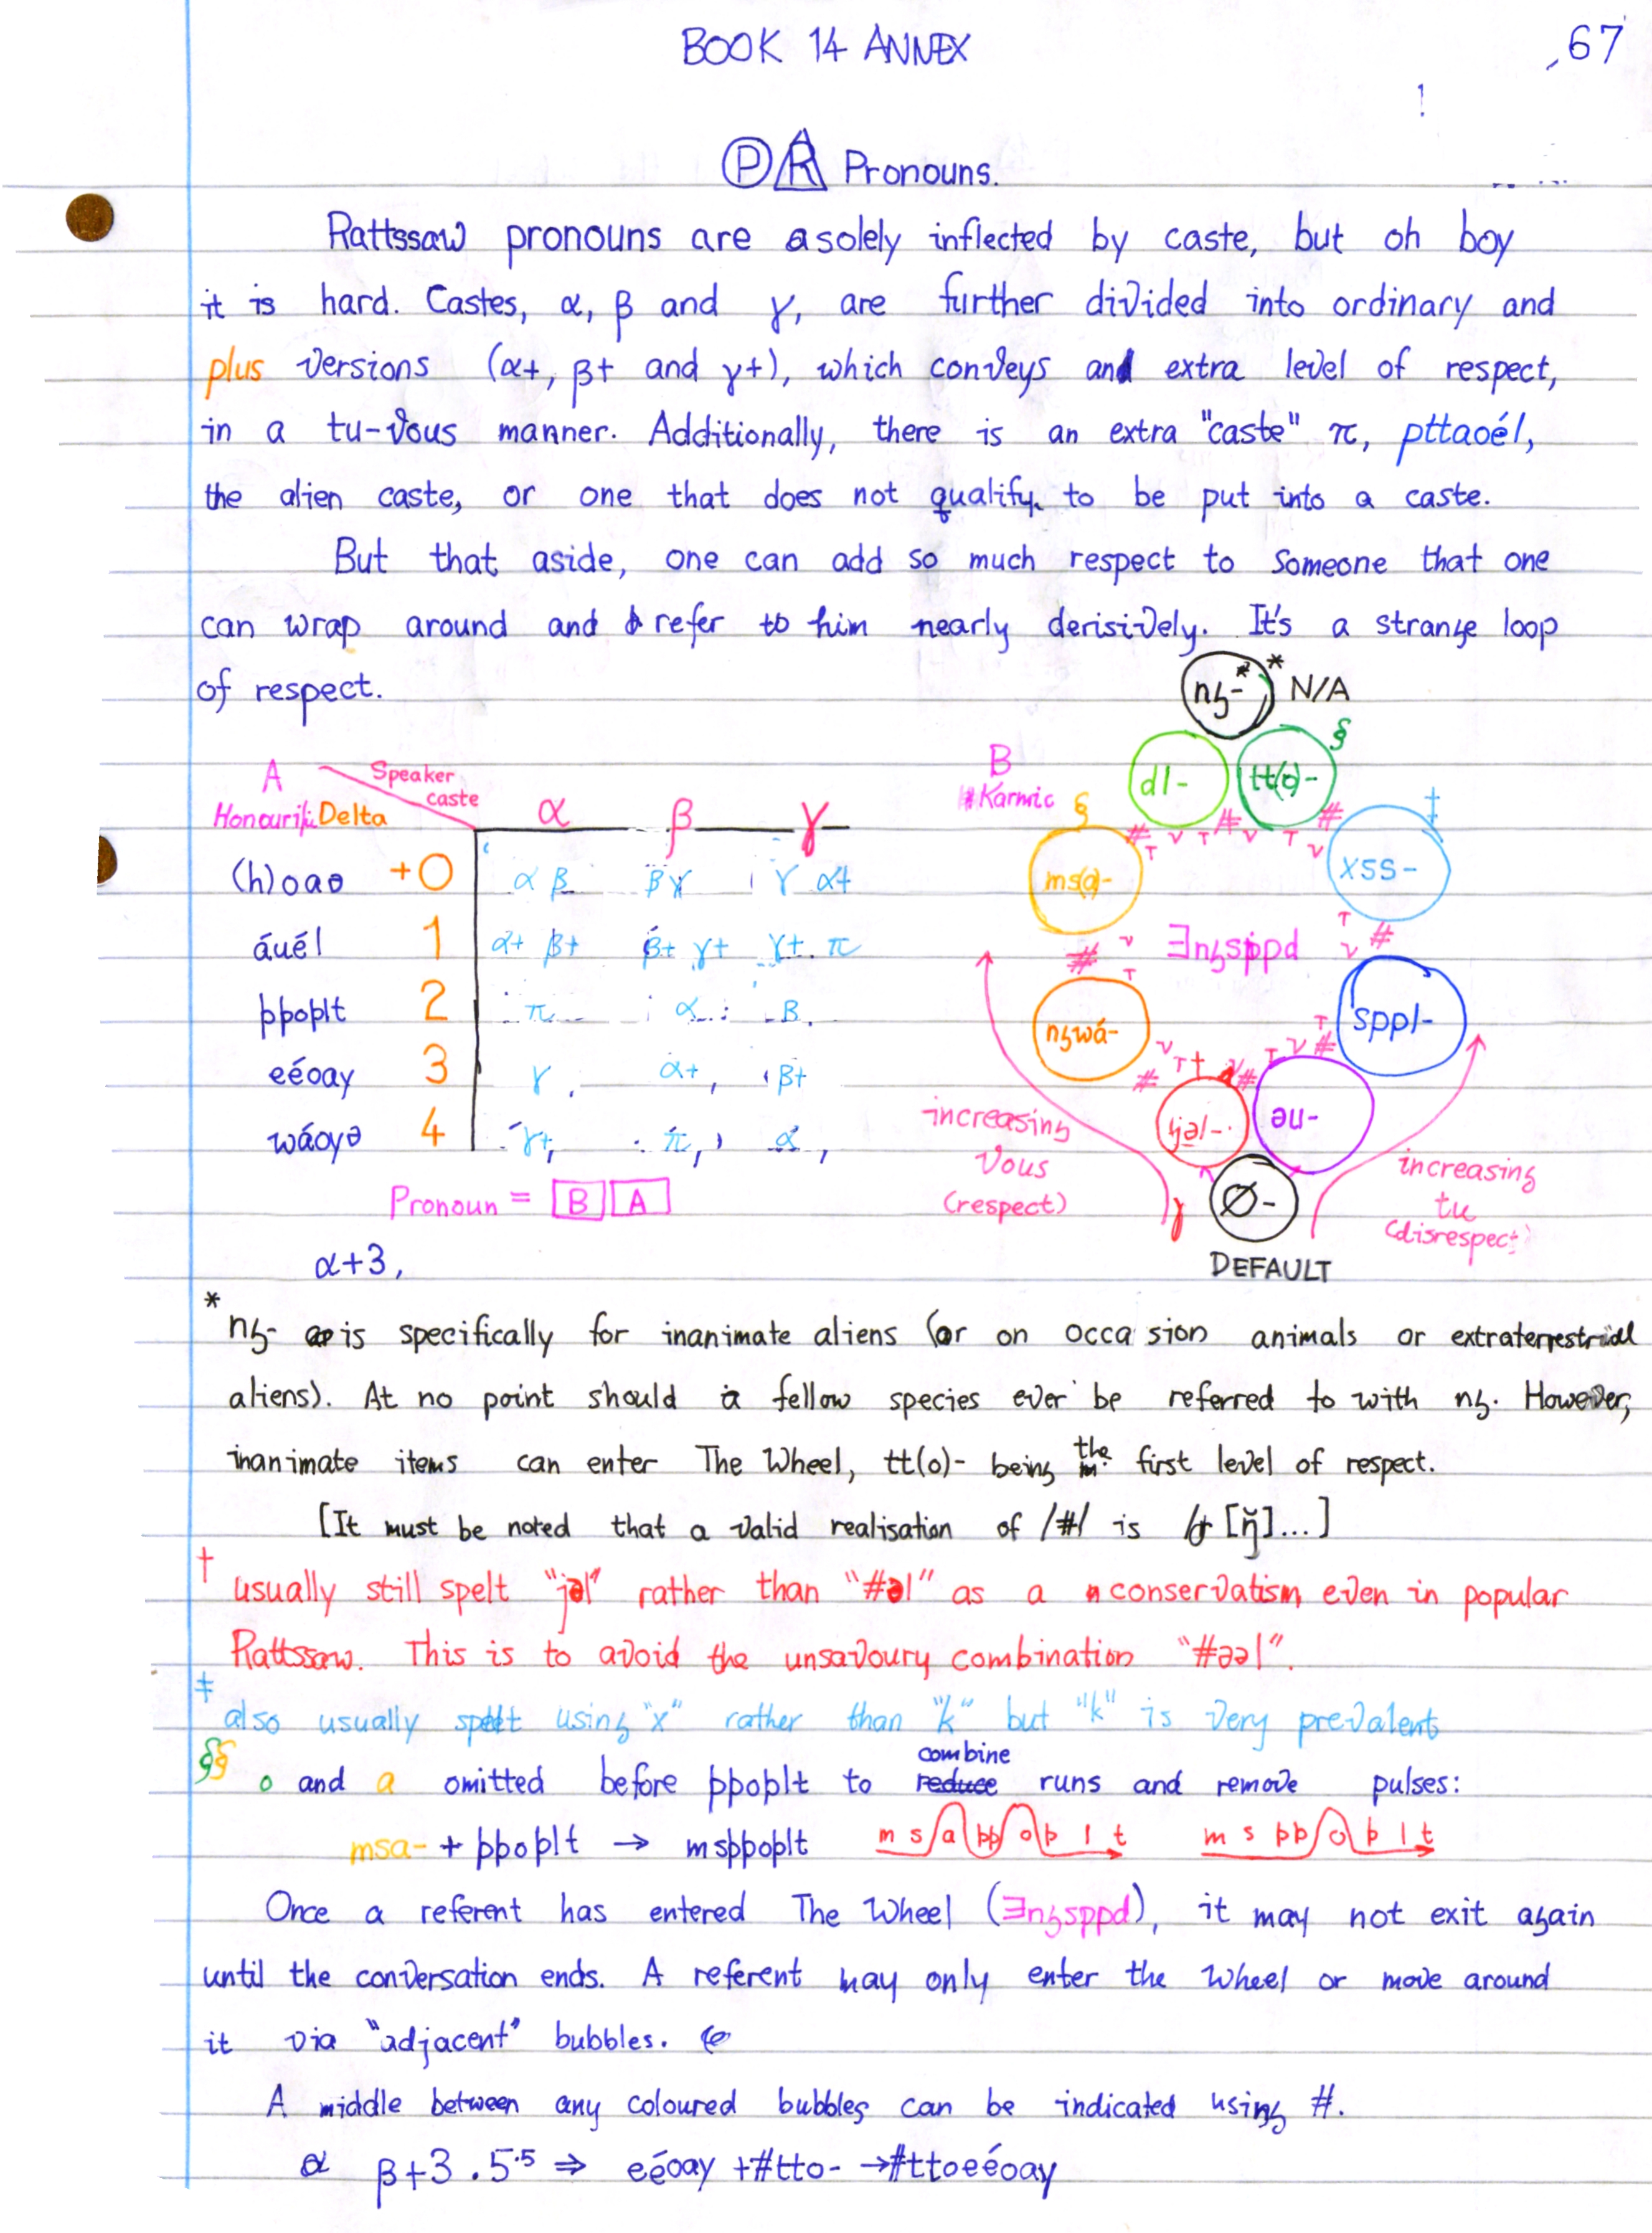 BOOK 14 ANNEX
67
Ⓟ R Pronouns.
Rattssaw pronouns are solely inflected by caste, but oh boy
it is hard. Castes, α, β and γ, are further divided into ordinary and
plus versions (α+, β+ and γ+), which conveys and extra level of respect,
in a tu-vous manner. Additionally, there is an extra "caste" π, pttaoél,
the alien caste, or one that does not qualify to be put into a caste.
But that aside, one can add so much respect to someone that one
can wrap around and refer to him nearly derisively. It's a strange loop
of respect.
A Speaker caste
Honourific Delta α β γ
(h)oaə +0 α β βγ γ α+
áuél 1 α+ β+ β+ γ+ γ+ π
þþoþlt 2 π α β
eéoay 3 γ, α+, β+
wáoyə 4 γ+, π, α,
Pronoun = B A
α+3,
B
Karmic
nȝ-* * N/A
dl- tt(o)- §
§ ms(a)- xss- ‡
Ǝnȝsppd
nȝwá- sppl-
† jəl- əu-
Ø-
DEFAULT
increasing
vous
(respect)
increasing
tu
(disrespect)
* nȝ- is specifically for inanimate aliens (or on occasion animals or extraterrestrial
aliens). At no point should a fellow species ever be referred to with nȝ. However,
inanimate items can enter The Wheel, tt(o)- being the first level of respect.
[It must be noted that a valid realisation of /#/ is [ŋ̆]...]
† usually still spelt "jəl" rather than "#əl" as a conservatism even in popular
Rattssaw. This is to avoid the unsavoury combination "#əəl".
‡ also usually spelt using "x" rather than "k" but "k" is very prevalent
§§ o and a omitted before þþoþlt to combine reduce runs and remove pulses:
msa- + þþoþlt → msþþoþlt m s a þþ o þ l t m s þþ o þ l t
Once a referent has entered The Wheel (Ǝnȝsppd), it may not exit again
until the conversation ends. A referent may only enter the wheel or move around
it via "adjacent" bubbles.
A middle between any coloured bubbles can be indicated using #.
β+3 . 5·5 ⇒ eéoay +#tto- →#ttoeéoay